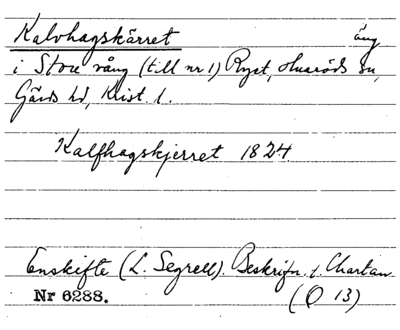 Kalvhagskärret äng
i Store vång (till nr 1) Ryet, Huaröds sn,
Gärds hd, Krist. l.
Kalfhagskjerret 1824
Enskifte (L. Segrell). Beskrifn. t. Chartan
Nr 6288. (O 13)